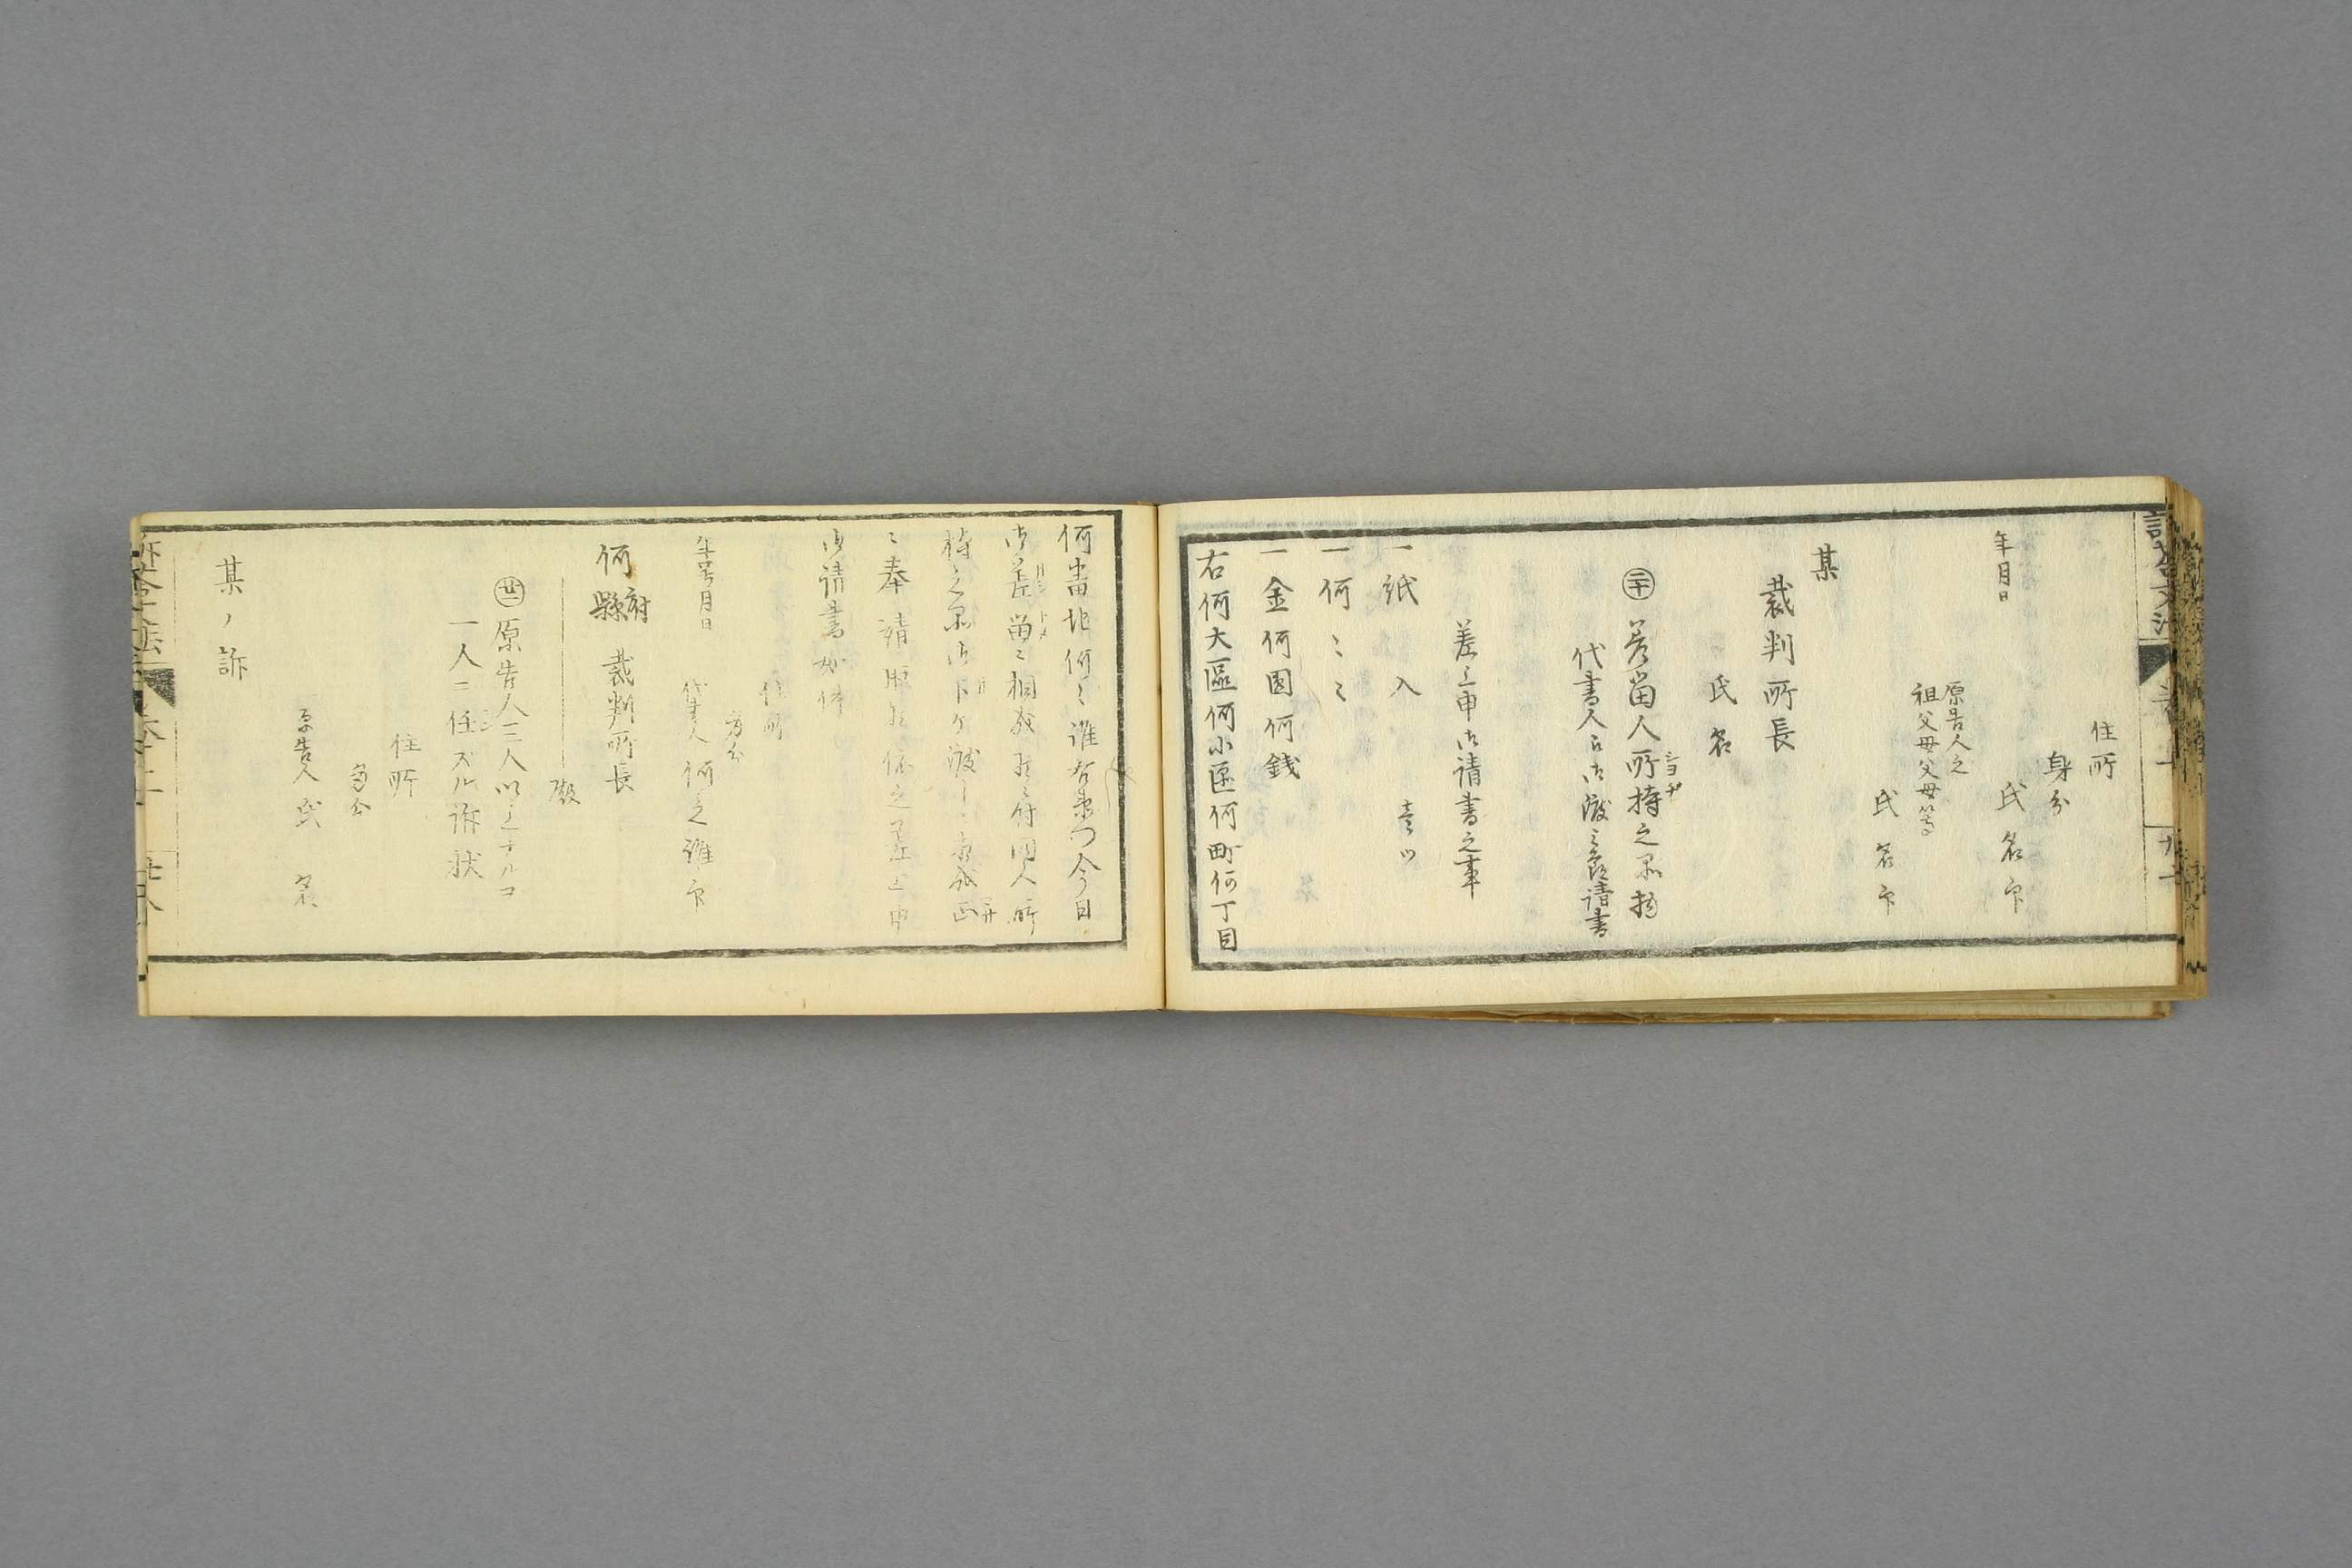 住所
身分
氏名印
年月日
原告人之
祖父母父母等
氏名印
某
裁判所長
氏名
㊁十 差留人所持之品物
代書人ニ御渡之節請書
差上申御請書之事
一紙入 壱ツ
一何〻〻
一金何圓何銭
右何大區何小區何町何丁目
何番地何之誰右衛門今日
御差留ニ相成候ニ付同人所
持之品御下ケ渡
ニ奉請取候依之差上申
御請書如件
住所
身分
年号月日
代書人 何之誰印
何府縣裁判所長
殿
廿一 原告人二三人以上ナルコ
一人ニ任ズル訴状
住所
身分
原告人 氏名
某ノ訴